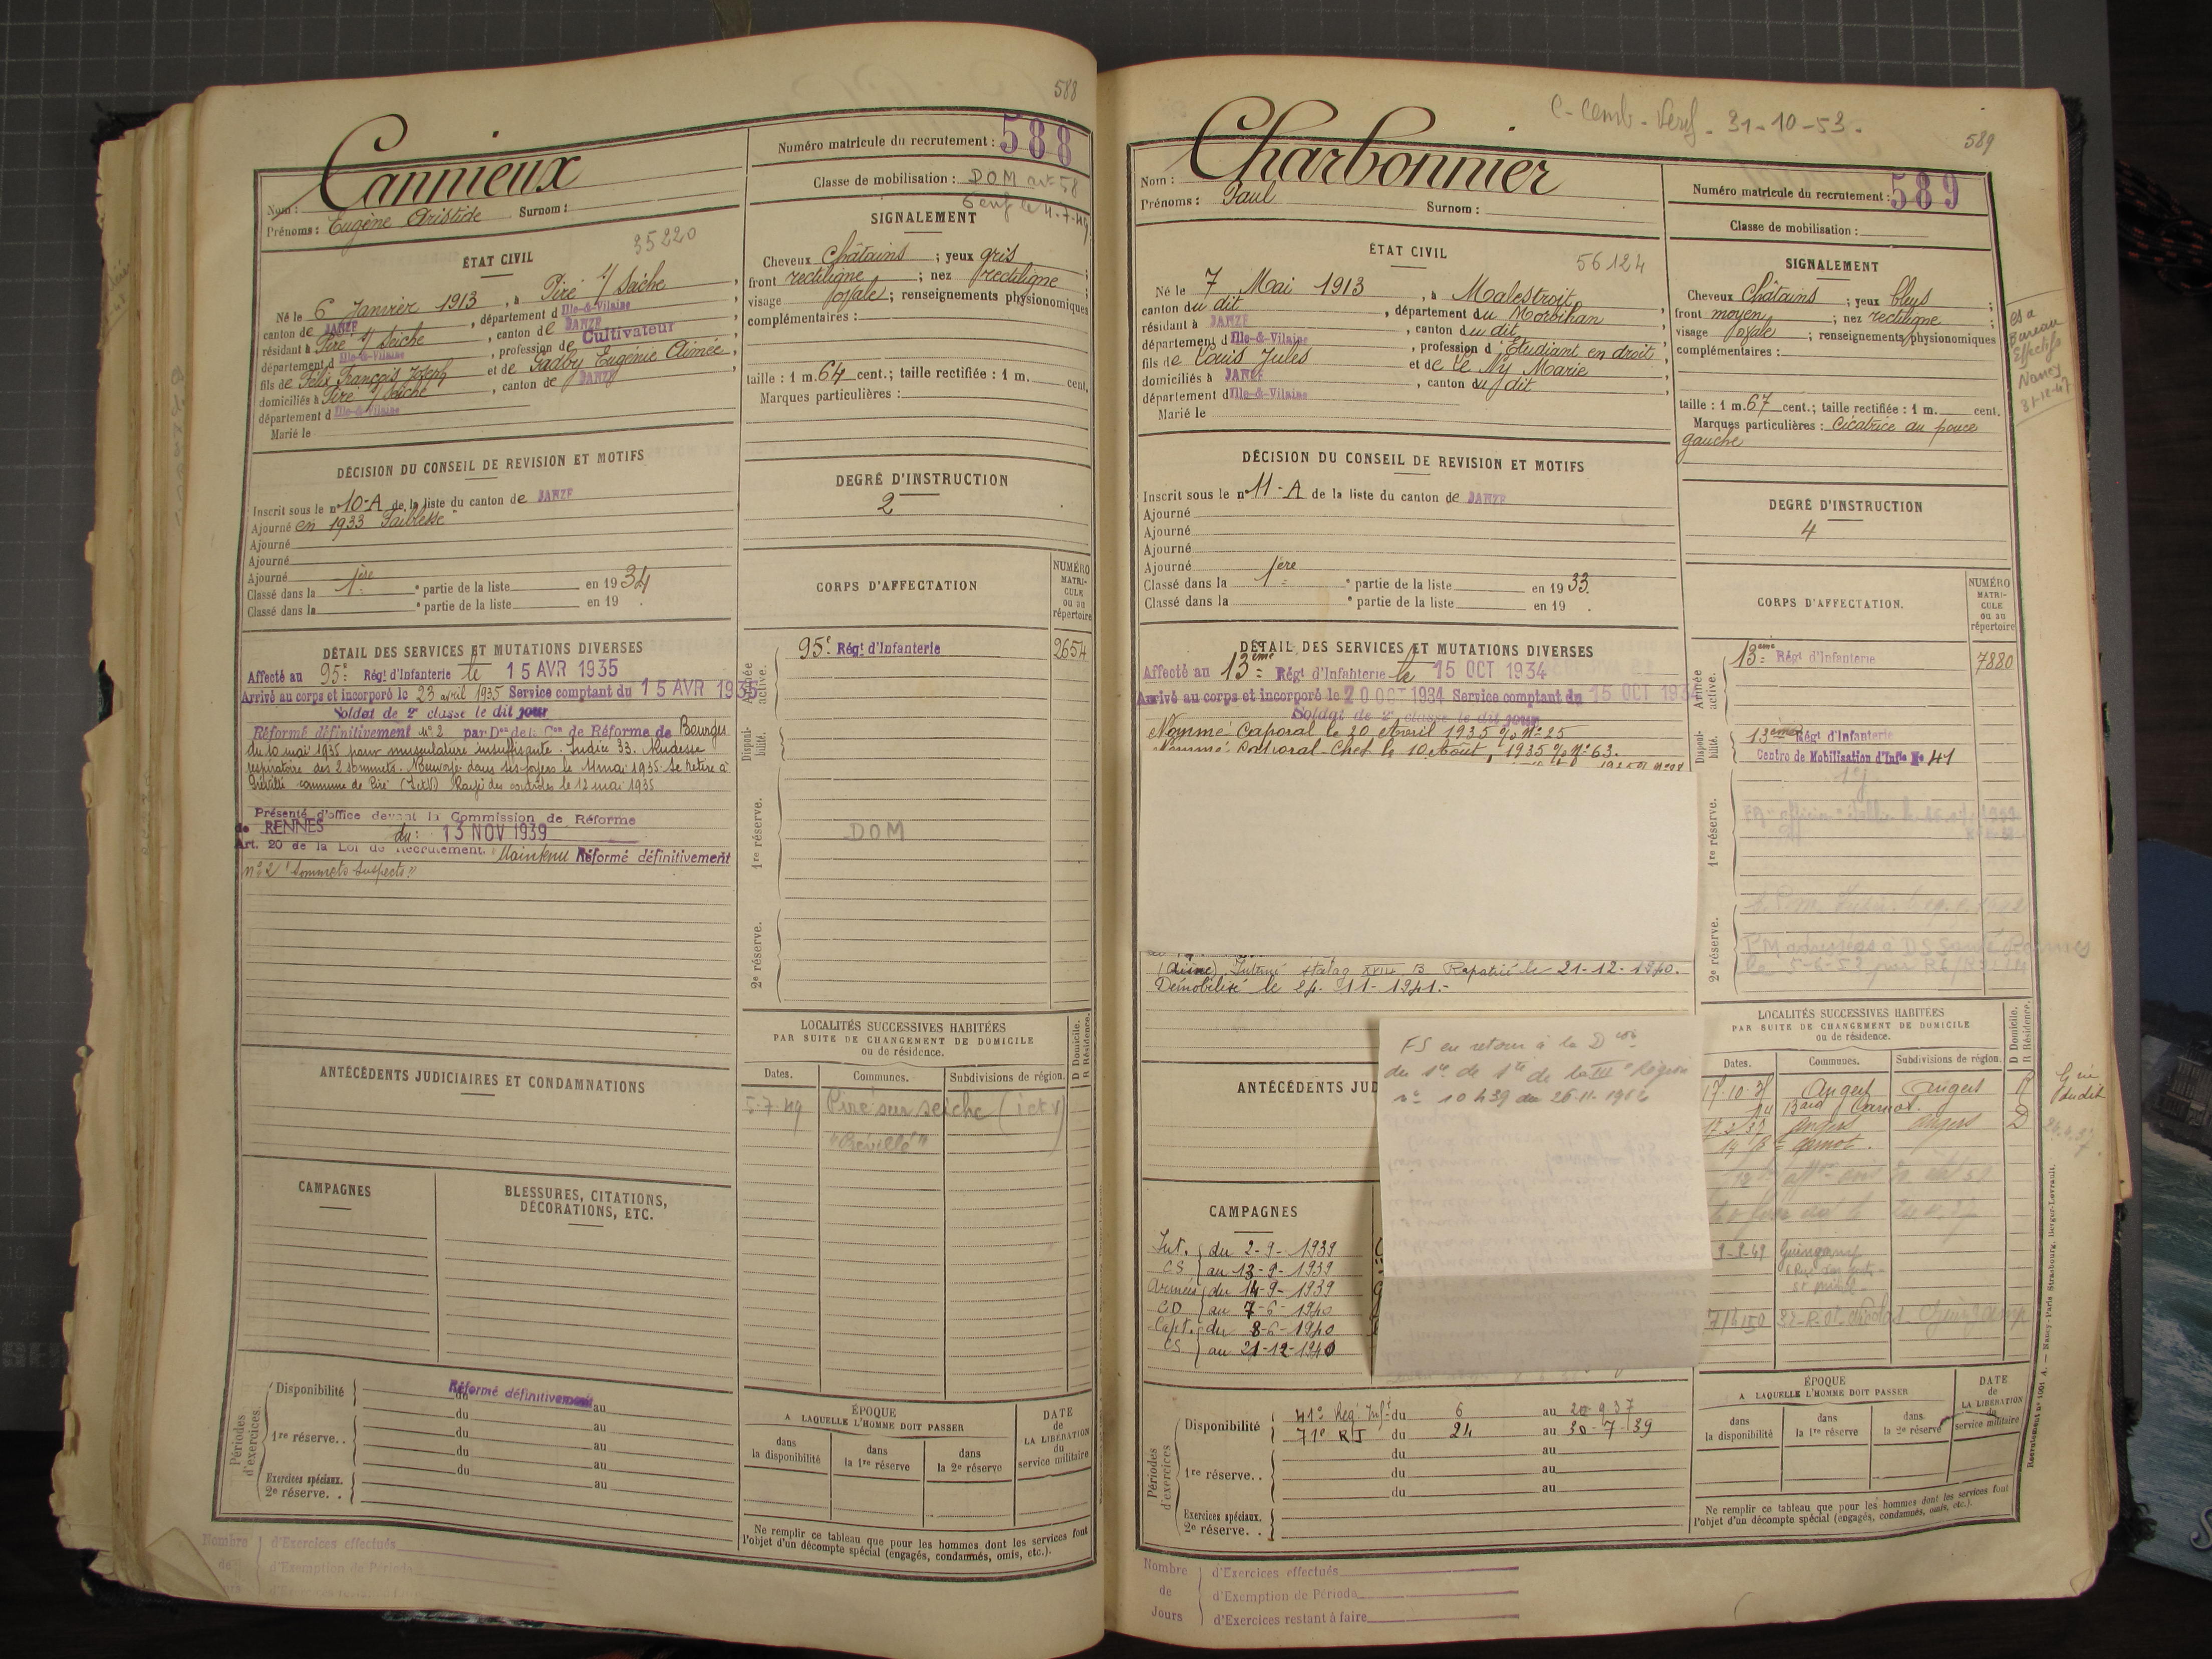 588
Cannieux
Nom :
Prénoms : Eugène Aristide Surnom :
Numéro matricule du recrutement : 588
Classe de mobilisation : DOM art 58
35220
ÉTAT CIVIL
Né le 6 Janvier 1913, à Piré s/ Seiche,
canton de JANZÉ, département d Ille-&-Vilaine,
résidant à Piré s/ Seiche, canton de JANZÉ,
département d Ille-&-Vilaine, profession de Cultivateur
fils de Félix François Joseph et de Gadby Eugénie Aimée,
domiciliés à Piré s/ Seiche, canton de JANZÉ,
département d Ille-&-Vilaine
Marié le
SIGNALEMENT
Cheveux Châtains ; yeux gris ;
front rectiligne ; nez rectiligne ;
visage ovale ; renseignements physionomiques
complémentaires :
taille : 1 m. 64 cent.; taille rectifiée : 1 m. cent.
Marques particulières :
DÉCISION DU CONSEIL DE REVISION ET MOTIFS
Inscrit sous le n° 10-A de la liste du canton de JANZÉ
Ajourné en 1933 Faiblesse
Ajourné
Ajourné
Ajourné
Classé dans la 1ère partie de la liste en 1934
Classé dans la e partie de la liste en 19 .
DEGRÉ D'INSTRUCTION
2
CORPS D'AFFECTATION
NUMÉRO MATRI-CULE ou au répertoire
Armée active.
95e Régt d'Infanterie 2654
Disponi-bilité.
1re réserve.
DOM
2e réserve.
DÉTAIL DES SERVICES ET MUTATIONS DIVERSES
Affecté au 95e Régt d'Infanterie le 15 AVR 1935
Arrivé au corps et incorporé le 23 avril 1935 Service comptant du 15 AVR 1935
Soldat de 2e classe le dit jour
Réformé définitivement n° 2 par Don de la Con de Réforme de Bourges
du 10 mai 1935 pour musculature insuffisante. Indice 33. Rudesse
respiratoire des 2 sommets. Renvoyé dans ses foyers le 11 mai 1935. Se retire à
Préville commune de Piré (I et V) Rayé des contrôles le 12 mai 1935
Présenté d'office devant la Commission de Réforme
de RENNES du : 13 NOV 1939
Art. 20 de la Loi de Recrutement. Maintenu Réformé définitivement
n° 2 "Sommets suspects"
ANTÉCÉDENTS JUDICIAIRES ET CONDAMNATIONS
LOCALITÉS SUCCESSIVES HABITÉES
PAR SUITE DE CHANGEMENT DE DOMICILE
ou de résidence.
D Domicile. R Résidence.
Dates. Communes. Subdivisions de région.
5-7-49 Piré sur Seiche (i et v)
"Préville"
CAMPAGNES
BLESSURES, CITATIONS,
DÉCORATIONS, ETC.
Périodes d'exercices.
Disponibilité Réformé définitivement du au
du au
1re réserve. . du au
du au
Exercices spéciaux. du au
2e réserve. .
ÉPOQUE
A LAQUELLE L'HOMME DOIT PASSER
dans la disponibilité
dans la 1re réserve
dans la 2e réserve
DATE de LA LIBÉRATION du service militaire
Ne remplir ce tableau que pour les hommes dont les services font
l'objet d'un décompte spécial (engagés, condamnés, omis, etc.).
Nombre de Jours
d'Exercices effectués
d'Exemption de Période
C-Comb- 31-10-53.
589
Charbonnier
Nom :
Prénoms : Paul Surnom :
Numéro matricule du recrutement : 589
Classe de mobilisation :
ÉTAT CIVIL
56124
Né le 7 Mai 1913, à Malestroit,
canton du dit, département du Morbihan
résidant à JANZÉ, canton du dit,
département d Ille-&-Vilaine, profession d'Étudiant en droit,
fils de Louis Jules et de Le Ny Marie
domiciliés à JANZÉ, canton du dit,
département d Ille-&-Vilaine
Marié le
SIGNALEMENT
Cheveux Châtains ; yeux bleus ;
front moyen ; nez rectiligne ;
visage ovale ; renseignements physionomiques
complémentaires :
taille : 1 m. 67 cent.; taille rectifiée : 1 m. cent.
Marques particulières : Cicatrice au pouce
gauche
Bureau
Effectifs
Nancy
31-12-47
DÉCISION DU CONSEIL DE REVISION ET MOTIFS
Inscrit sous le n° 11-A de la liste du canton de JANZÉ
Ajourné
Ajourné
Ajourné
Ajourné
Classé dans la 1ère partie de la liste en 1933.
Classé dans la e partie de la liste en 19 .
DEGRÉ D'INSTRUCTION
4
CORPS D'AFFECTATION.
NUMÉRO MATRI-CULE ou au répertoire
Armée active.
13ème Régt d'Infanterie 7880
Disponi-bilité.
13ème Régt d'Infanterie
Centre de Mobilisation d'Infie No 41
1re réserve.
2e réserve.
PM adressées à DS Santé Rennes
DÉTAIL DES SERVICES ET MUTATIONS DIVERSES
Affecté au 13ème Régt d'Infanterie le 15 OCT 1934
Arrivé au corps et incorporé le 20 OCT 1934 Service comptant du 15 OCT 1934
Soldat de 2e classe le dit jour
Nommé Caporal le 20 Avril 1935 o/o N° 25
Nommé Caporal Chef le 10 Août 1935 o/o N° 63.
(Aisne). Interné stalag XVII B Rapatrié le 21-12-1940.
Démobilisé le 24-11-1941.-
ANTÉCÉDENTS JUD
FS en retour à la Dion
du Sce de Sté de la IIIe Région
n° 10439 du 26-11-1962
LOCALITÉS SUCCESSIVES HABITÉES
PAR SUITE DE CHANGEMENT DE DOMICILE
ou de résidence.
D Domicile. R Résidence.
Dates. Communes. Subdivisions de région.
17-10-35 Angers Angers R
14 Bard Carnot.
Angers Angers D
14 Bd Carnot.
Guingamp
Guingamp
CAMPAGNES
Int. du 2-9-1939
CS au 13-9-1939
Armées du 14-9-1939
CD au 7-6-1940
Capt. du 8-6-1940
CS au 21-12-1940
Périodes d'exercices
Disponibilité 41e Rég. Inf. du 6 au 20-9-37
71e RI du 24 au 30-7-39
du au
1re réserve. . du au
du au
Exercices spéciaux.
2e réserve. .
ÉPOQUE
A LAQUELLE L'HOMME DOIT PASSER
dans la disponibilité
dans la 1re réserve
dans la 2e réserve
DATE de LA LIBÉRATION du service militaire
Ne remplir ce tableau que pour les hommes dont les services font
l'objet d'un décompte spécial (engagés, condamnés, omis, etc.).
Nancy-Paris Strasbourg, Berger-Levrault.
Nombre de Jours
d'Exercices effectués
d'Exemption de Période
d'Exercices restant à faire